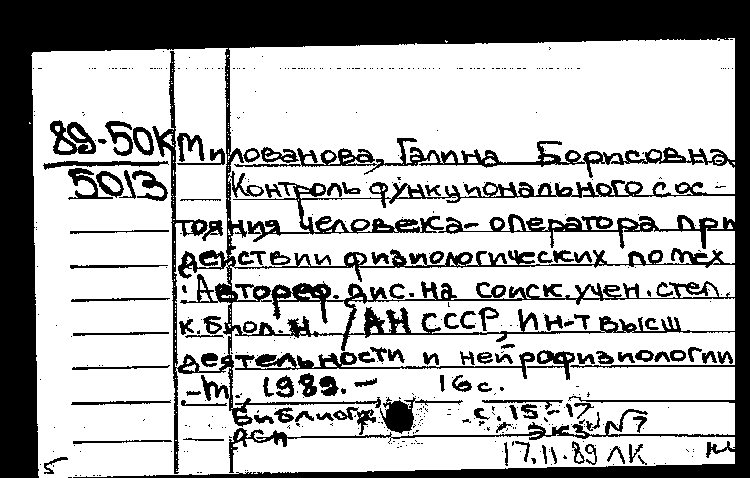 89-50К Миловaнова, Галина Борисовна
5013 Контроль функционального сос-
тояния человека-оператора при
действии физиологических помех
: Автореф. дис. на соиск. учен. степ.
к. биол. н. / АН СССР, Ин-т высш
деятельности и нейрофизиологии
.-М, 1989. - 16 с.
Библиогр. с. 15-17
ДСП экз №7
17.11.89 ЛК
5